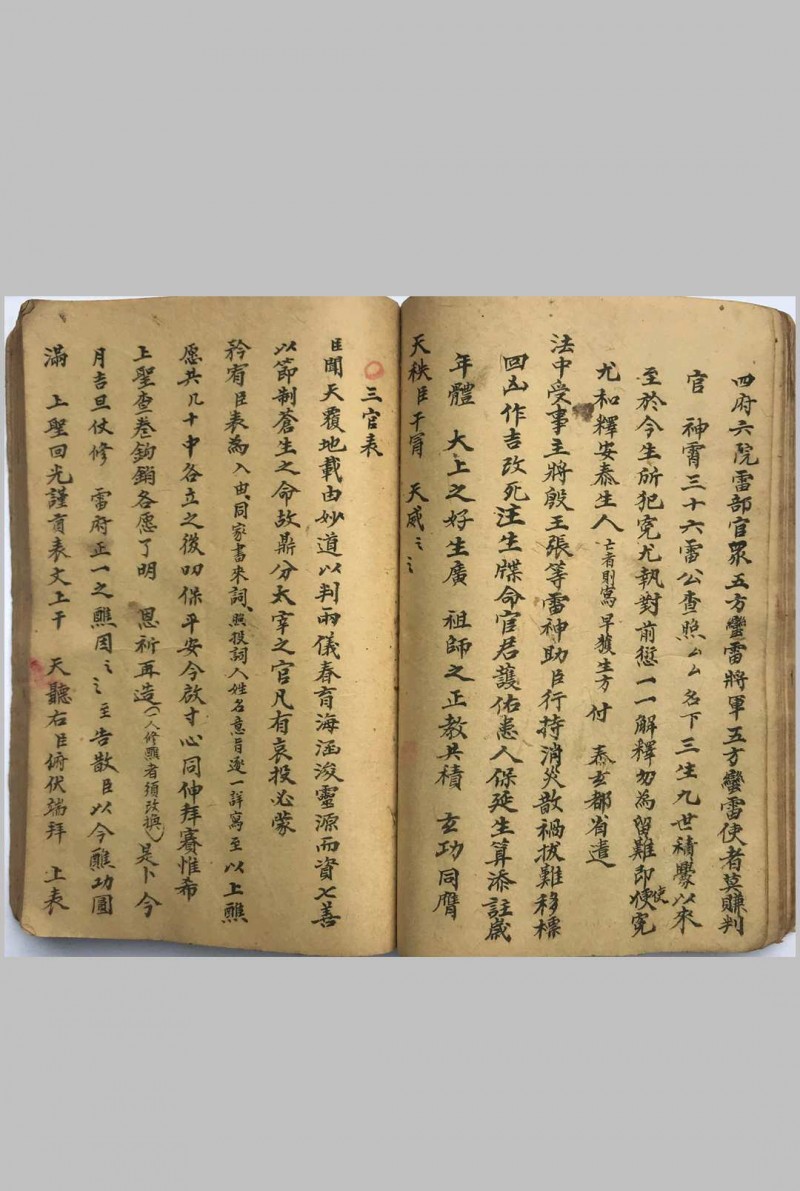 四府六院雷部官眾五方蠻雷將軍五方蠻雷使者莫賺判
官 神霄三十六雷公查照厶厶名下三生九世積釁以來
至於今生所犯寃尤執對前愆一一解釋勿為留難即使寃
尤和釋安泰生人亡者則寫早獲生方 付 泰玄都省遣
法中受事主將殷王張等雷神助臣行持消災散禍拔難移標
回凶作吉改死注生牒命官君護佑患人保延生算添註歲
年體 大上之好生廣 祖師之正教共積 玄功同膺
天秩臣干冐 天威〻〻
三官表
臣聞天覆地載由妙道以判兩儀春育海涵浚靈源而資七善
以節制蒼生之命故鼎分太宰之官凡有哀投必蒙
矜宥臣表為入由同家書來詞照投詞人姓名意旨逐一詳寫至以上醮
愿共几十中各立之後叨保平安今啟寸心同伸拜賽惟希
上聖查卷鈎銷各愿了明 恩祈再造(一人修醮者須改換)是卜今
月吉旦仗修 雷府正一之醮因〻〻至告散臣以今醮功圓
滿 上聖回光謹賫表文上干 天聽右臣俯伏端拜 上表